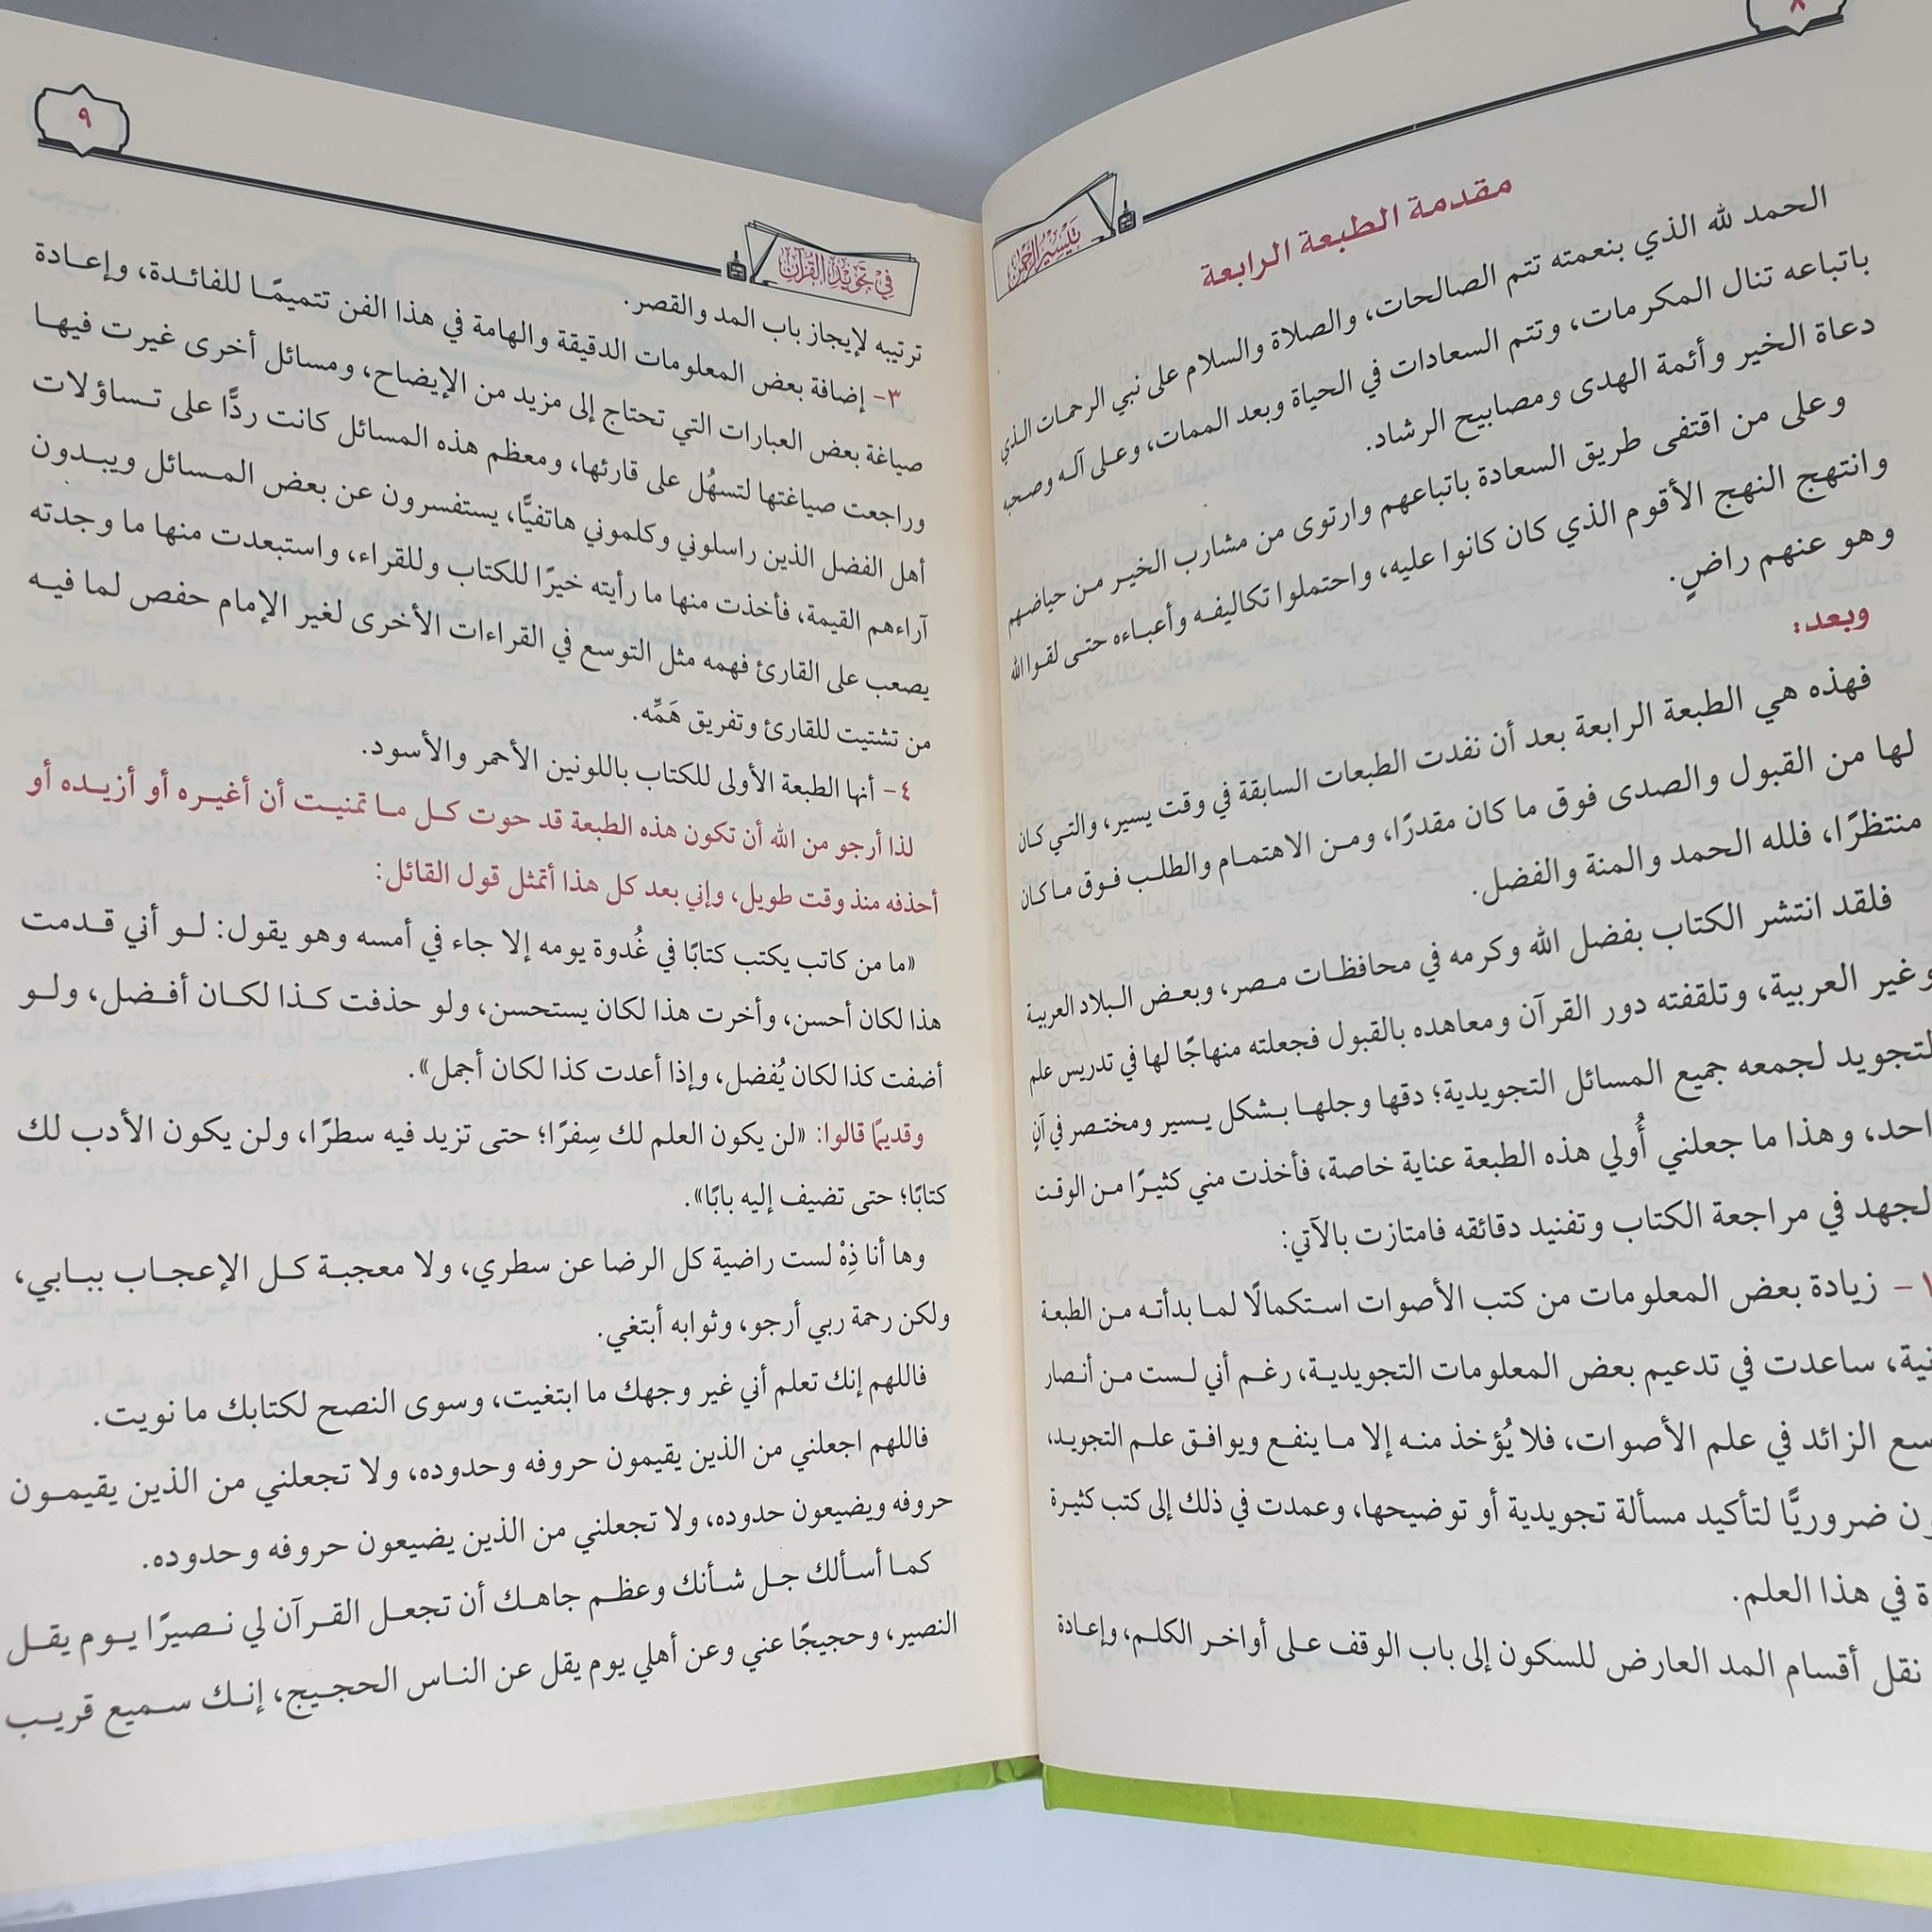 ٨
تيسير الرحمن
مقدمة الطبعة الرابعة
الحمد لله الذي بنعمته تتم الصالحات، والصلاة والسلام على نبي الرحمات الذي
باتباعه تنال المكرمات، وتتم السعادات في الحياة وبعد الممات، وعلى آله وصحبه
دعاة الخير وأئمة الهدى ومصابيح الرشاد.
وعلى من اقتفى طريق السعادة باتباعهم وارتوى من مشارب الخير من حياضهم
وانتهج النهج الأقوم الذي كان كانوا عليه، واحتملوا تكاليفه وأعباءه حتى لقوا الله
وهو عنهم راضٍ.
وبعد:
فهذه هي الطبعة الرابعة بعد أن نفدت الطبعات السابقة في وقت يسير، والتي كان
لها من القبول والصدى فوق ما كان مقدرًا، ومن الاهتمام والطلب فوق ما كان
منتظرًا، فلله الحمد والمنة والفضل.
فلقد انتشر الكتاب بفضل الله وكرمه في محافظات مصر، وبعض البلاد العربية
وغير العربية، وتلقفته دور القرآن ومعاهده بالقبول فجعلته منهاجًا لها في تدريس علم
لتجويد لجمعه جميع المسائل التجويدية؛ دقها وجلها بشكل يسير ومختصر في آنٍ
احد، وهذا ما جعلني أُولي هذه الطبعة عناية خاصة، فأخذت مني كثيرًا من الوقت
لجهد في مراجعة الكتاب وتفنيد دقائقه فامتازت بالآتي:
١- زيادة بعض المعلومات من كتب الأصوات استكمالًا لما بدأته من الطبعة
نية، ساعدت في تدعيم بعض المعلومات التجويدية، رغم أني لست من أنصار
سع الزائد في علم الأصوات، فلا يُؤخذ منه إلا ما ينفع ويوافق علم التجويد،
ون ضروريًّا لتأكيد مسألة تجويدية أو توضيحها، وعمدت في ذلك إلى كتب كثيرة
ة في هذا العلم.
نقل أقسام المد العارض للسكون إلى باب الوقف على أواخر الكلم، وإعادة
٩
في تجويد القرآن
ترتيبه لإيجاز باب المد والقصر.
٣- إضافة بعض المعلومات الدقيقة والهامة في هذا الفن تتميمًا للفائدة، وإعادة
صياغة بعض العبارات التي تحتاج إلى مزيد من الإيضاح، ومسائل أخرى غيرت فيها
وراجعت صياغتها لتسهُل على قارئها، ومعظم هذه المسائل كانت ردًّا على تساؤلات
أهل الفضل الذين راسلوني وكلموني هاتفيًّا، يستفسرون عن بعض المسائل ويبدون
آراءهم القيمة، فأخذت منها ما رأيته خيرًا للكتاب وللقراء، واستبعدت منها ما وجدته
يصعب على القارئ فهمه مثل التوسع في القراءات الأخرى لغير الإمام حفص لما فيه
من تشتيت للقارئ وتفريق هَمِّه.
٤- أنها الطبعة الأولى للكتاب باللونين الأحمر والأسود.
لذا أرجو من الله أن تكون هذه الطبعة قد حوت كل ما تمنيت أن أغيره أو أزيده أو
أحذفه منذ وقت طويل، وإني بعد كل هذا أتمثل قول القائل:
«ما من كاتب يكتب كتابًا في غُدوة يومه إلا جاء في أمسه وهو يقول: لو أني قدمت
هذا لكان أحسن، وأخرت هذا لكان يستحسن، ولو حذفت كذا لكان أفضل، ولو
أضفت كذا لكان يُفضل، وإذا أعدت كذا لكان أجمل».
وقديمًا قالوا: «لن يكون العلم لك سِفرًا؛ حتى تزيد فيه سطرًا، ولن يكون الأدب لك
كتابًا؛ حتى تضيف إليه بابًا».
وها أنا ذِهْ لست راضية كل الرضا عن سطري، ولا معجبة كل الإعجاب ببابي،
ولكن رحمة ربي أرجو، وثوابه أبتغي.
فاللهم إنك تعلم أني غير وجهك ما ابتغيت، وسوى النصح لكتابك ما نويت.
فاللهم اجعلني من الذين يقيمون حروفه وحدوده، ولا تجعلني من الذين يقيمون
حروفه ويضيعون حدوده، ولا تجعلني من الذين يضيعون حروفه وحدوده.
كما أسألك جل شأنك وعظم جاهك أن تجعل القرآن لي نصيرًا يوم يقل
النصير، وحجيجًا عني وعن أهلي يوم يقل عن الناس الحجيج، إنك سميع قريب